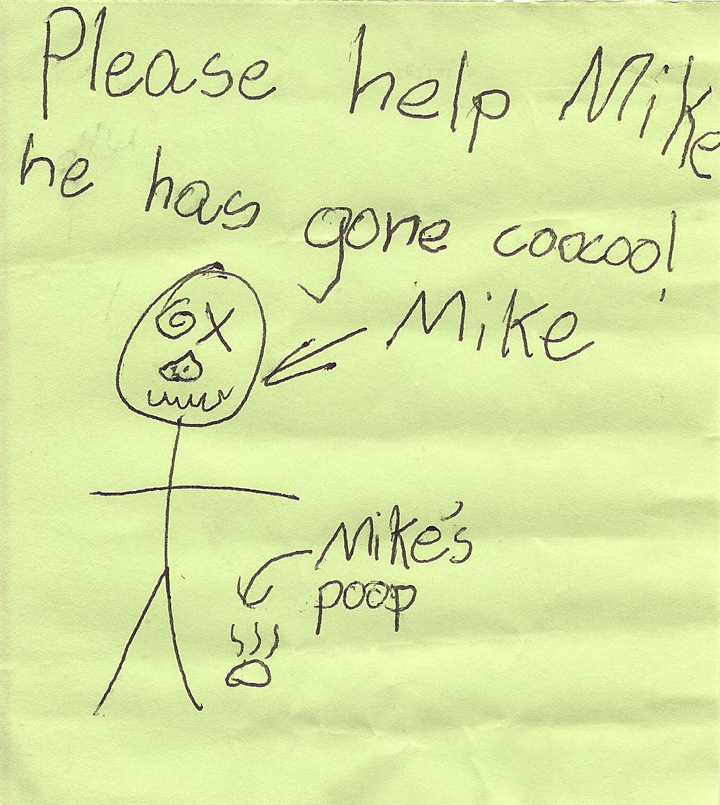 Please help Mike
he has gone coocoo!
Mike
Mike's
poop